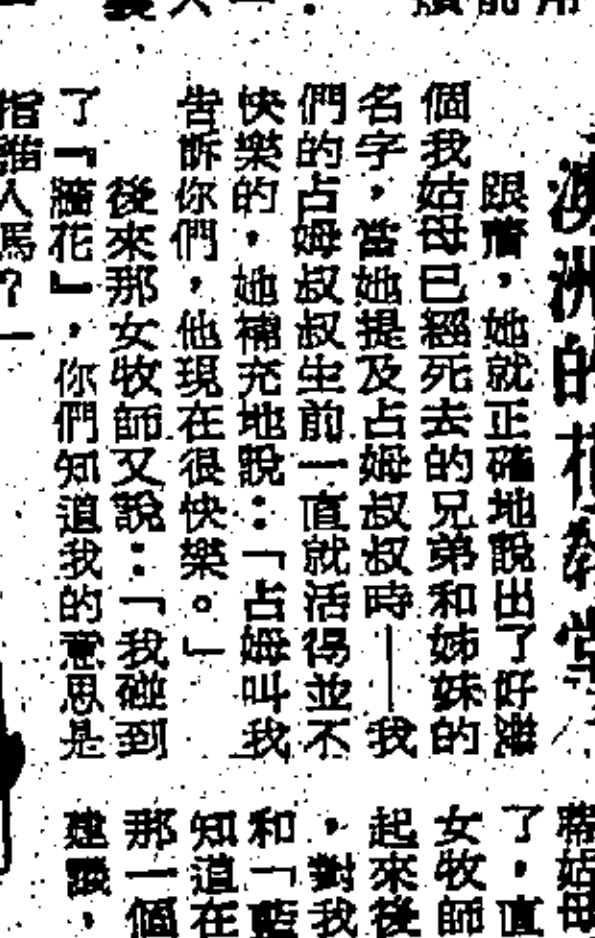 澳洲的
教堂
跟着，她就正確地說出了好幾
個我姑母已經死去的兄弟和姊妹的
名字，當她提及占姆叔叔時——我
們的占姆叔叔生前一直就活得並不
快樂的，她補充地說：「占姆叫我
告訴你們，他現在很快樂。」
後來那女牧師又說：「我碰到
了『牆花』，你們知道我的意思是
指誰人馬？」
姑母
了，直
女牧師
起來後
，對我
和「藍
知道在
那一個
建議，